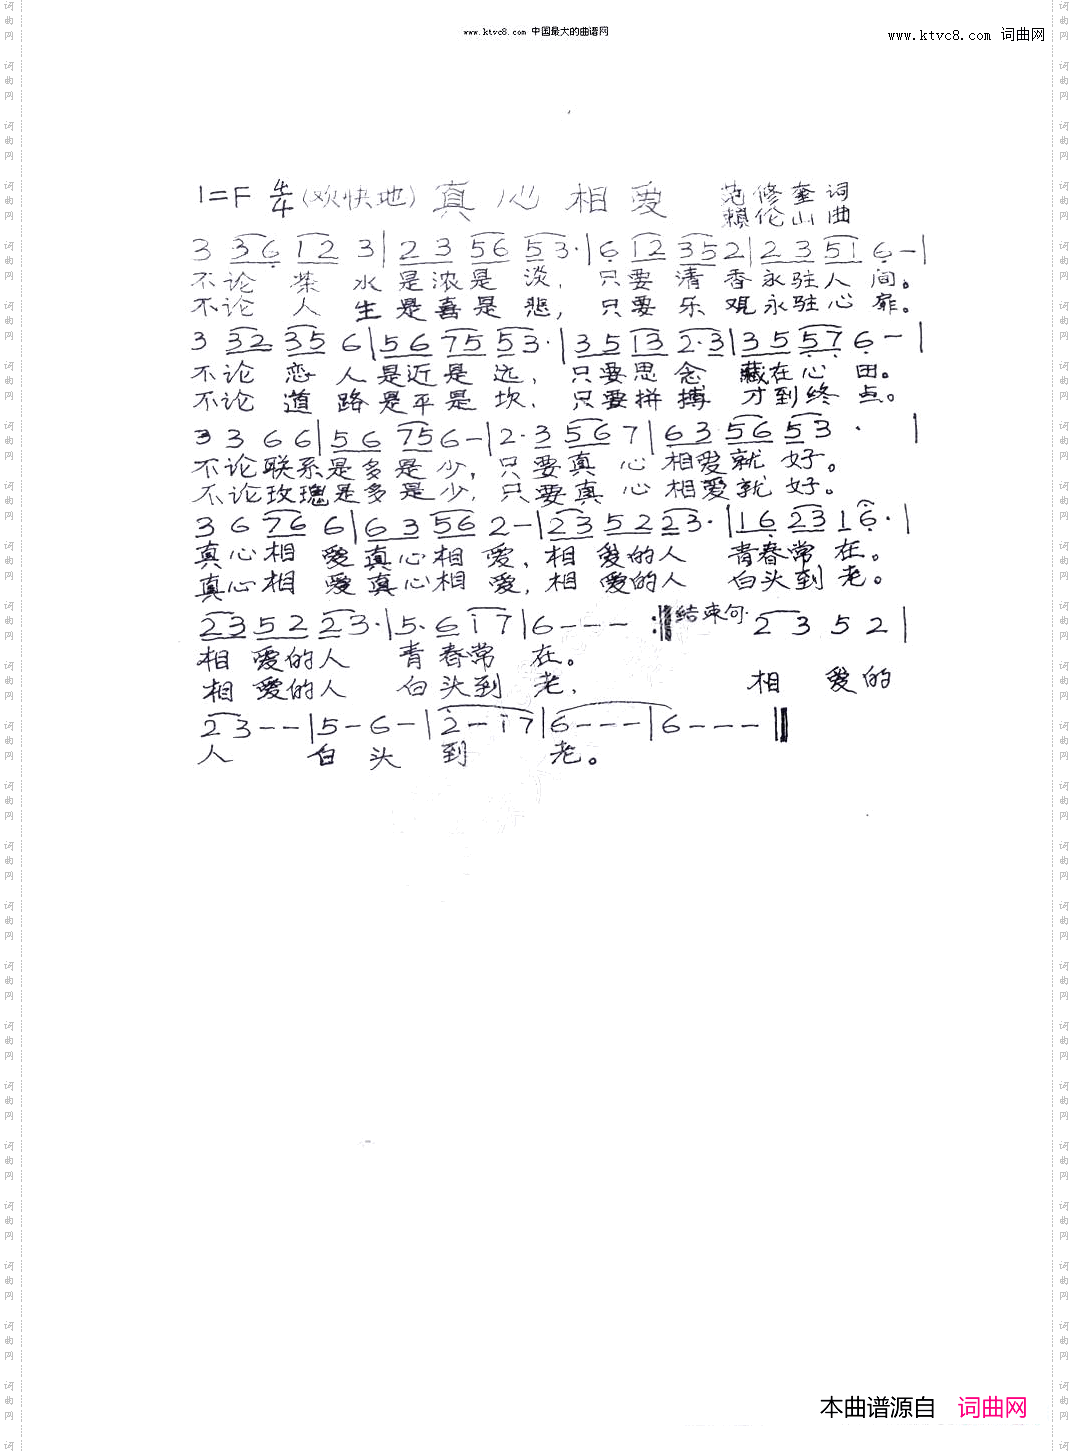 www.ktvc8.com 中国最大的曲谱网
www.ktvc8.com 词曲网
1=F 4/4 (欢快地) 真心相爱 范修奎 词
赖伦山 曲
3 36 12 3|2 3 56 53·|6 12 352|2 3 51 6-|
不论茶水是浓是淡，只要清香永驻人间。
不论人生是喜是悲，只要乐观永驻心扉。
3 32 35 6|56 75 53·|35 13 2·3|35 57 6-|
不论恋人是近是远，只要思念藏在心田。
不论道路是平是坎，只要拼搏才到终点。
3 3 6 6|56 75 6-|2·3 56 7|63 56 53·|
不论联系是多是少，只要真心相爱就好。
不论玫瑰是多是少，只要真心相爱就好。
3 6 76 6|63 56 2-|23 52 23·|16 23 16·|
真心相爱真心相爱，相爱的人青春常在。
真心相爱真心相爱，相爱的人白头到老。
23 52 23·|5·6 17|6---:‖结束句 23 5 2|
相爱的人青春常在。
相爱的人白头到老， 相爱的
23--|5-6-|2-17|6---|6---‖
人 白头到老。
本曲谱源自 词曲网
词
曲
网